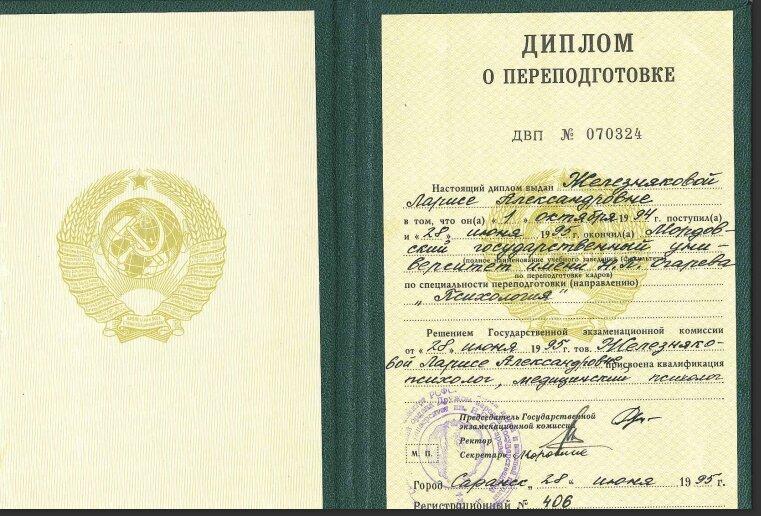 ДИПЛОМ
О ПЕРЕПОДГОТОВКЕ
ДВП № 070324
Настоящий диплом выдан Железняковой
Ларисе Александровне
в том, что он(а) « 1 » октября 1994 г. поступил(а)
и « 28 » июня 1995 г. окончил(а) Мордов-
ский государственный уни-
(полное наименование учебного заведения
верситет имени Н.П. Огарева
по переподготовке кадров)
по специальности переподготовки (направлению)
„ Психология "
Решением Государственной экзаменационной комиссии
от « 28 » июня 1995 г. тов. Железняко-
вой Ларисе Александровне присвоена квалификация
психолог, медицинский психолог
Председатель Государственной
экзаменационной комиссии
Ректор
М. П.
Секретарь
Город Саранск, 28 " июня 1995 г.
Регистрационный № 406